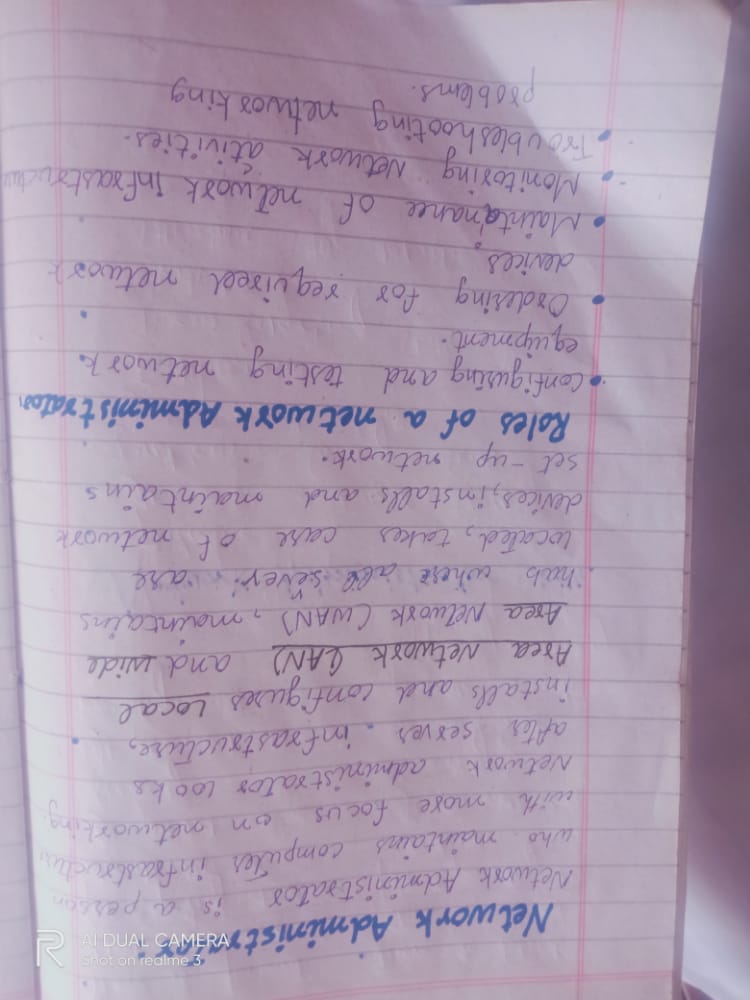 Network Administrator
Network Administrator is a person
who maintains computer infrastructure
with more focus on networking.
Network administrator looks
after server infrastructure,
installs and configures Local
Area Network (LAN) and wide
Area Network (WAN), maintains
hub where all sever are
located, takes care of network
devices, installs and maintains
set-up network.
Roles of a network Administrator
• Configuring and testing network
equipment.
• Ordering for required network
devices
• Maintainance of network infrastructure
• Monitoring Network ativities.
• Troubleshooting networking
problems.
R
AI DUAL CAMERA
Shot on realme 3